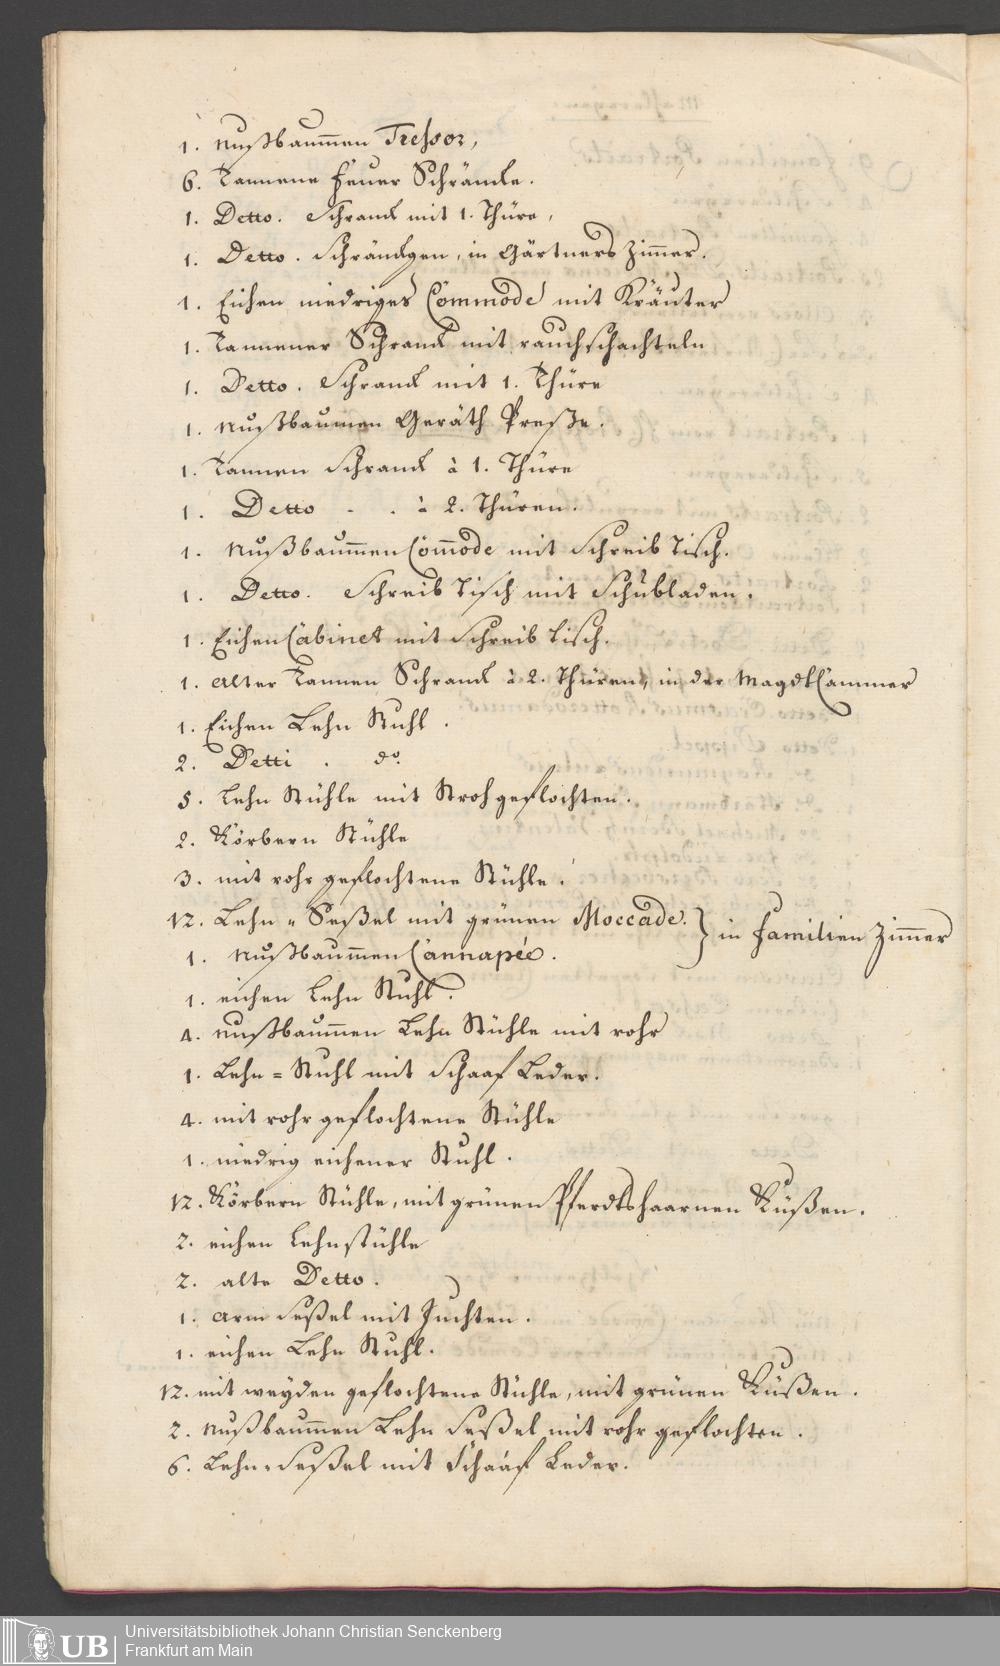 1. Nußbaum̅en Tressor,
6. Tannene feuer Schräncke.
1. Detto. Schranck mit 1. Thüre,
1. Detto. Schränckgen, in Gärtners Zim̅er.
1. Eichen niedriges Com̅ode mit Kräuter
1. Tannener Schranck mit rauchschachteln
1. Detto. Schranck mit 1. Thüre
1. Nußbaumen Geräth Preße.
1. Tannen Schranck à 1. Thüre
1. Detto - . à 2. Thüren.
1. Nußbaum̅en Com̅ode mit Schreib Tisch.
1. Detto. Schreib Tisch mit Schubladen.
1. Eichen Cabinet mit Schreib Tisch.
1. alter Tannen Schranck à 2. Thüren, in der Magdt Cammer
1. Eichen Lehn Stuhl.
2. Detti . do.
5. Lehn Stühle mit Stroh geflochten.
2. Körbern Stühle
3. mit rohr geflochtene Stühle.
12. Lehn = Seßel mit grünen Moccade. } in familien Zim̅er
1. Nußbaum̅en Cannapée.
1. eichen Lehn Stuhl.
4. Nußbaum̅en Lehn Stühle mit rohr
1. Lehn = Stuhl mit Schaaf Leder.
4. mit rohr geflochtene Stühle
1. niedrig eichener Stuhl.
12. Körbern Stühle, mit grünen Pferdtshaarnen Küßen.
2. eichen Lehnstühle
2. alte Detto.
1. Arm Seßel mit Juchten.
1. eichen Lehn Stuhl.
12. mit weyden geflochtene Stühle, mit grünen Küßen.
2. Nußbaum̅en Lehn Seßel mit rohr geflochten.
6. Lehn = Seßel mit Schaaf Leder.
UB
Universitätsbibliothek Johann Christian Senckenberg
Frankfurt am Main